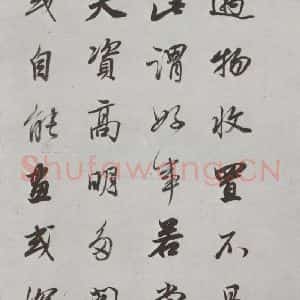 遇物收置不
此謂好事若
天資高明多
或自能畫或
Shufawang.CN